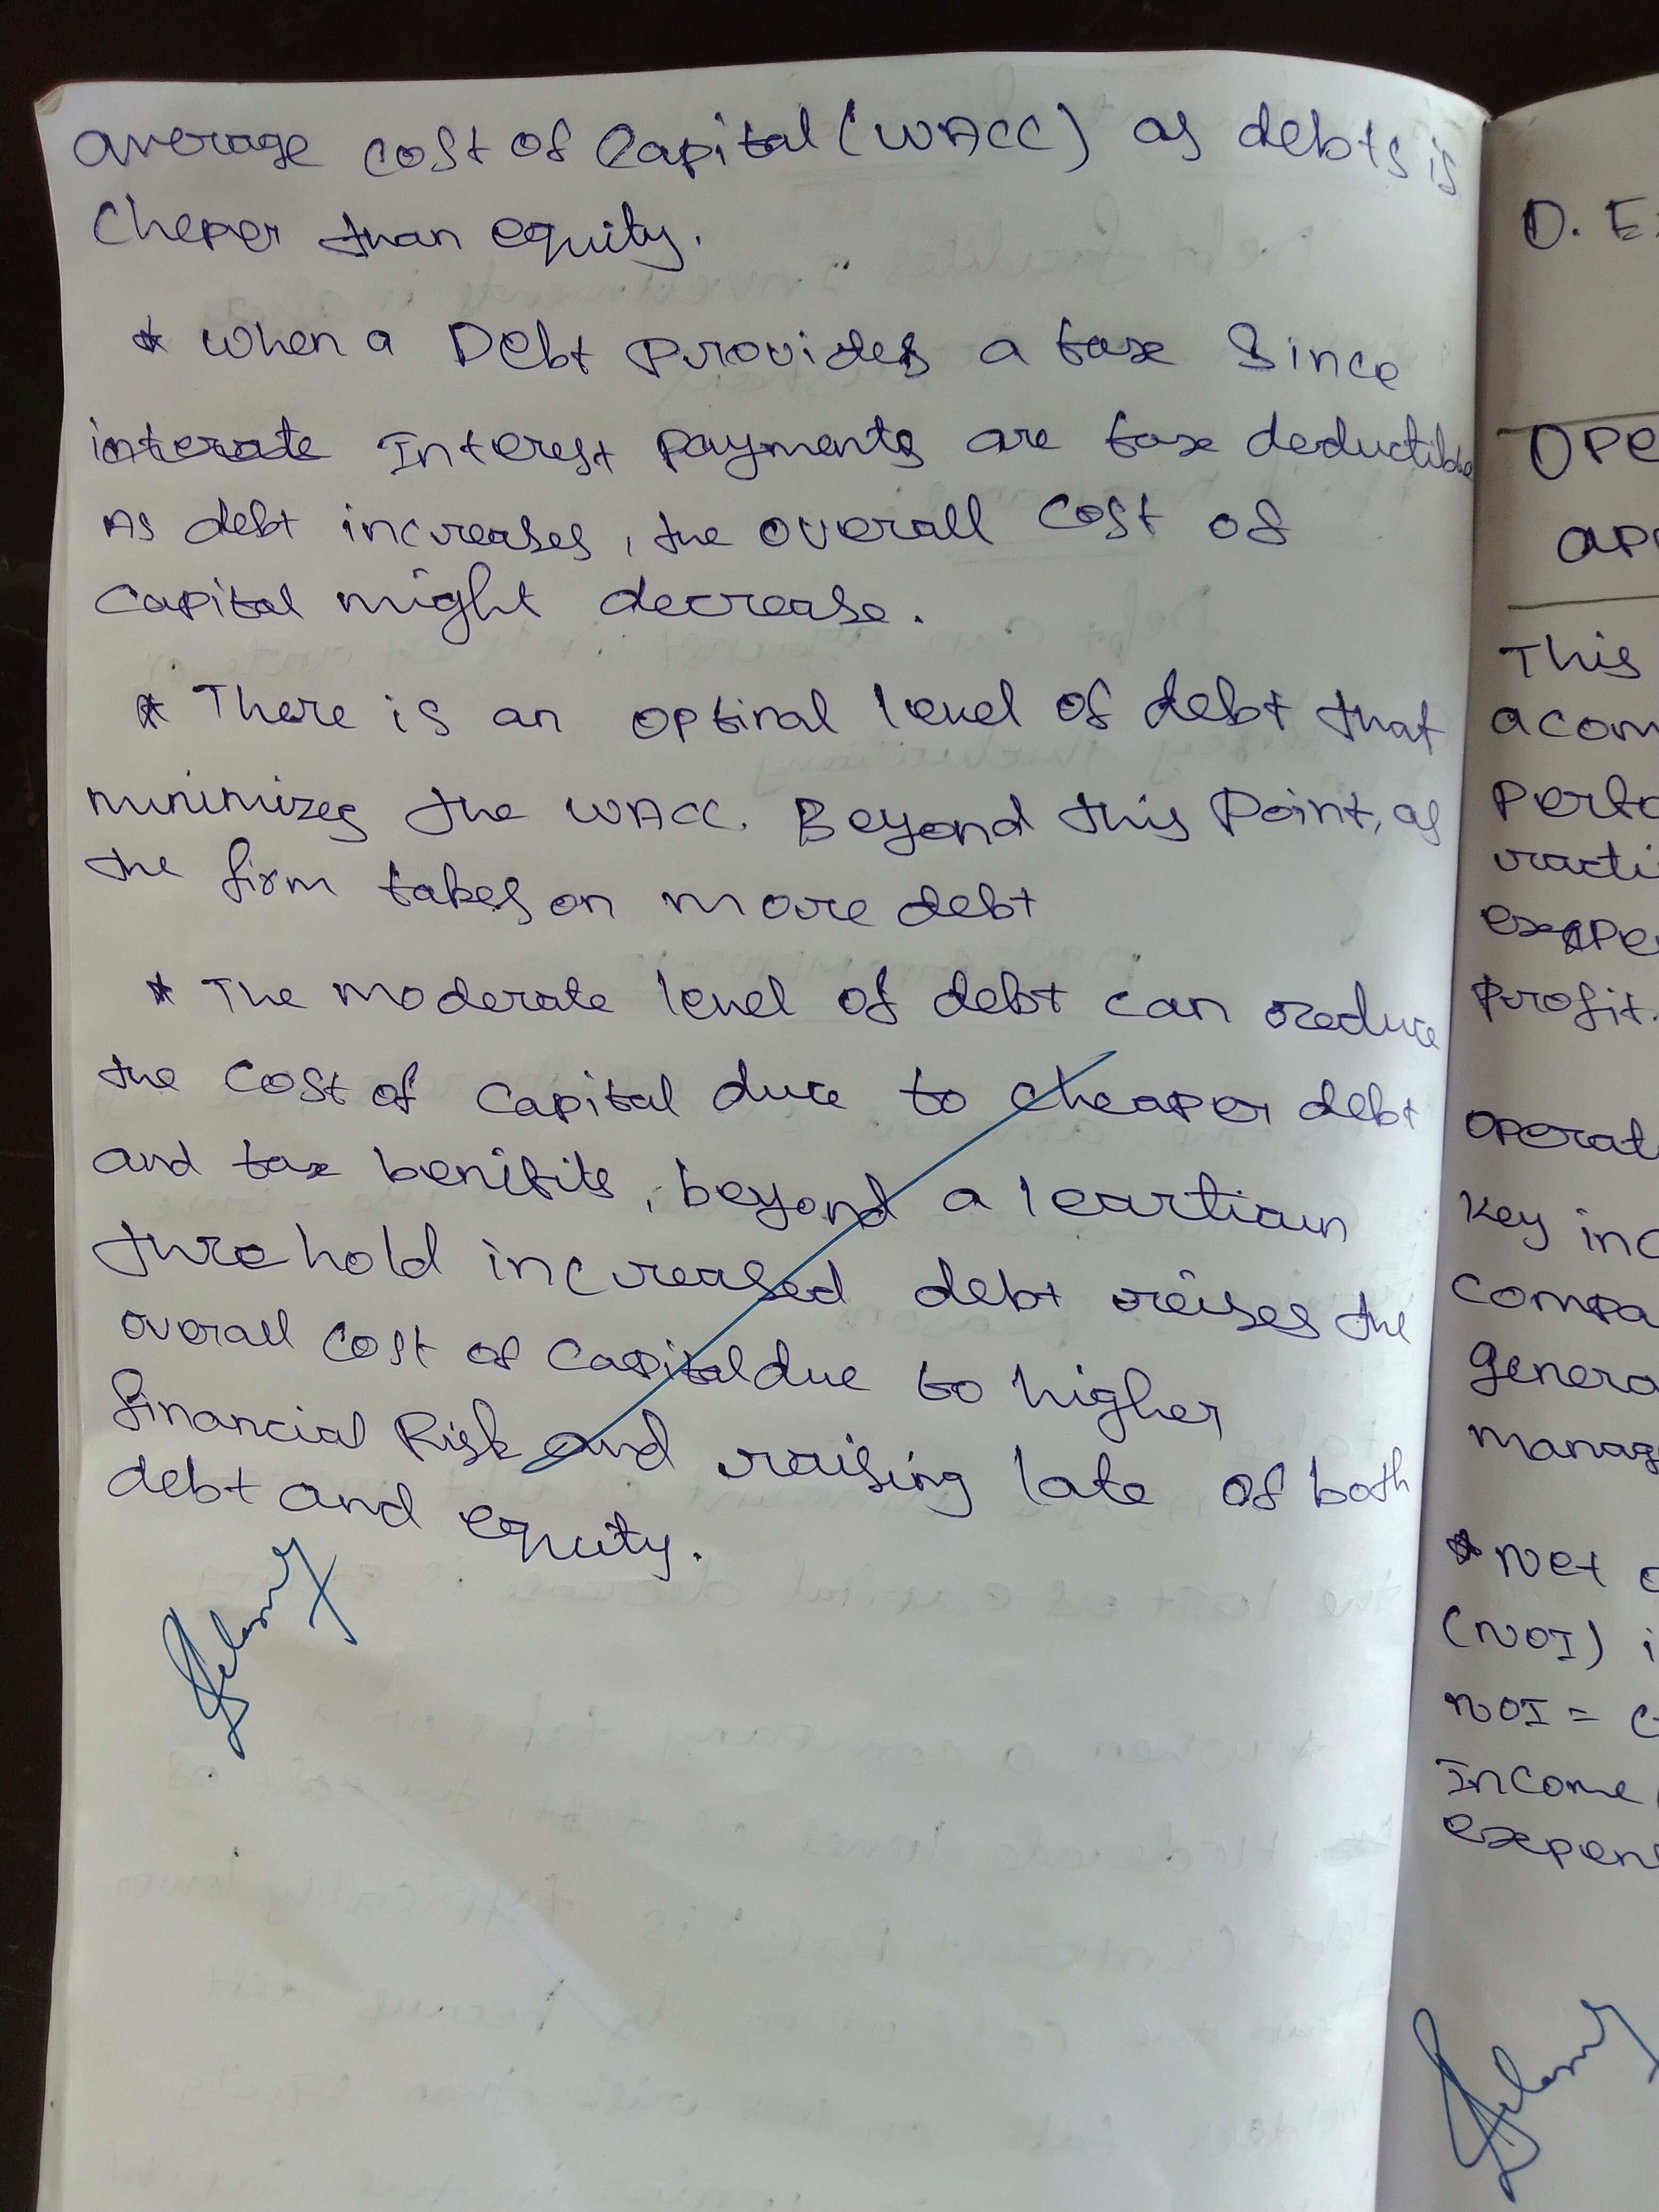 average cost of Capital (WACC) as debts is
Cheper than equity.
* When a Debt Provides a tax Since
interate Interest Payments are tax deductible
As debt increases, the overall cost of
Capital might decrease.
* There is an optinal level of debt that
minimizes the WACC. Beyond this Point, as
the firm takes on more debt
* The moderate level of debt can reduce
the cost of capital due to cheaper debt
and tax benifits, beyond a
threhold increased debt reises the
overall cost of Capital due to higher
financial Risk and raising late of both
debt and equity.
D. E
OPE
app
This
a com
Perfo
expe
profit.
operat
Key inc
Compa
genera
manag
* Net o
(NOI) i
NOI =
Income
expens